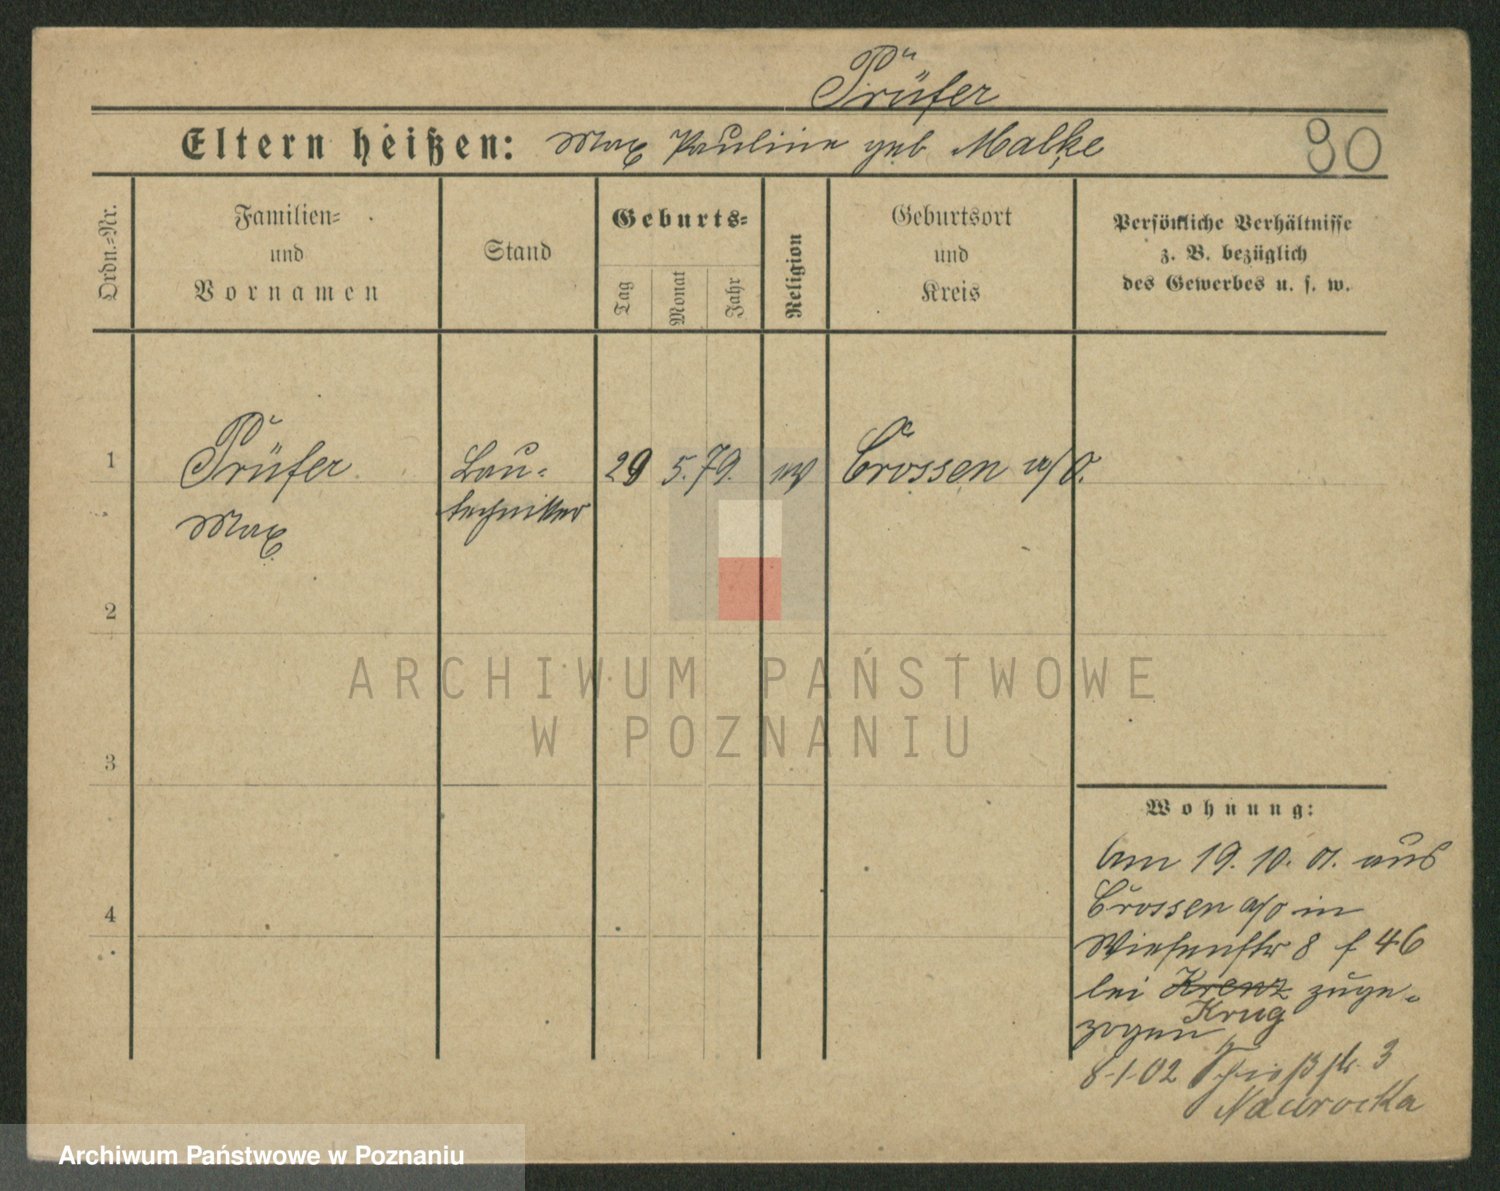 Prüfer
Eltern heißen: Max Pauline geb Malke
30
Ordn.-Nr.
Familien-
und
Vornamen
Stand
Geburts-
Tag
Monat
Jahr
Religion
Geburtsort
und
Kreis
Persönliche Verhältnisse
z. B. bezüglich
des Gewerbes u. s. w.
1
Prüfer
Max
Bau-
techniker
29 5. 79. ev
Crossen a/O.
2
3
4
ARCHIWUM PAŃSTWOWE
W POZNANIU
Wohnung:
Am 19. 10. 01. aus
Crossen a/O in
Wiesenstr 8 f 46
bei Krenz zuge-
Krug
zogen
8-1-02 Schießstr. 3
Nawrocka
Archiwum Państwowe w Poznaniu